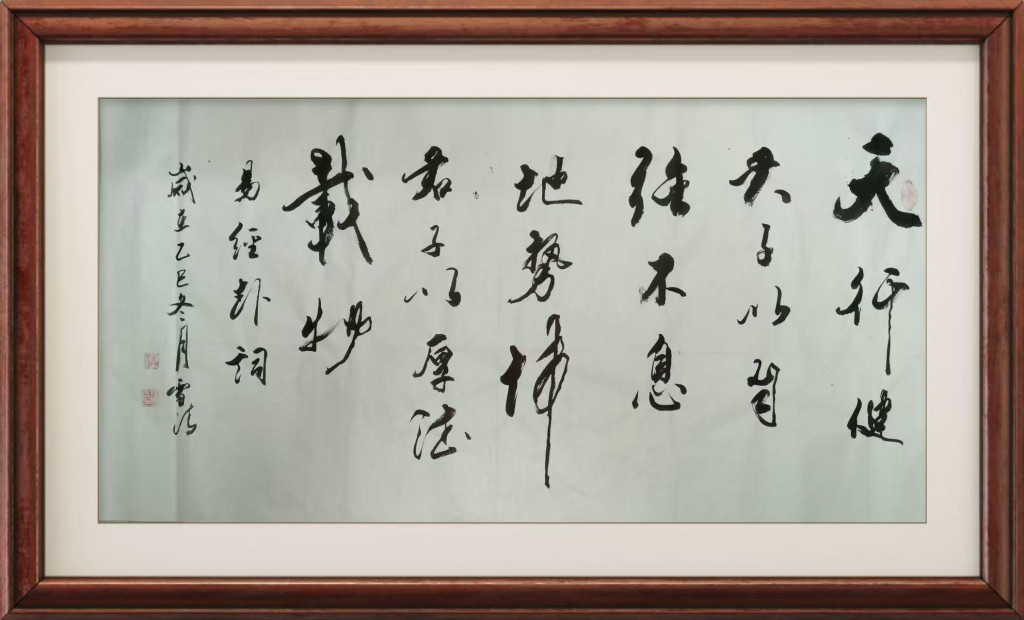 天行健
君子以自
强不息
地势坤
君子以厚德
載物
易經卦詞
歲在乙巳冬月雪濤